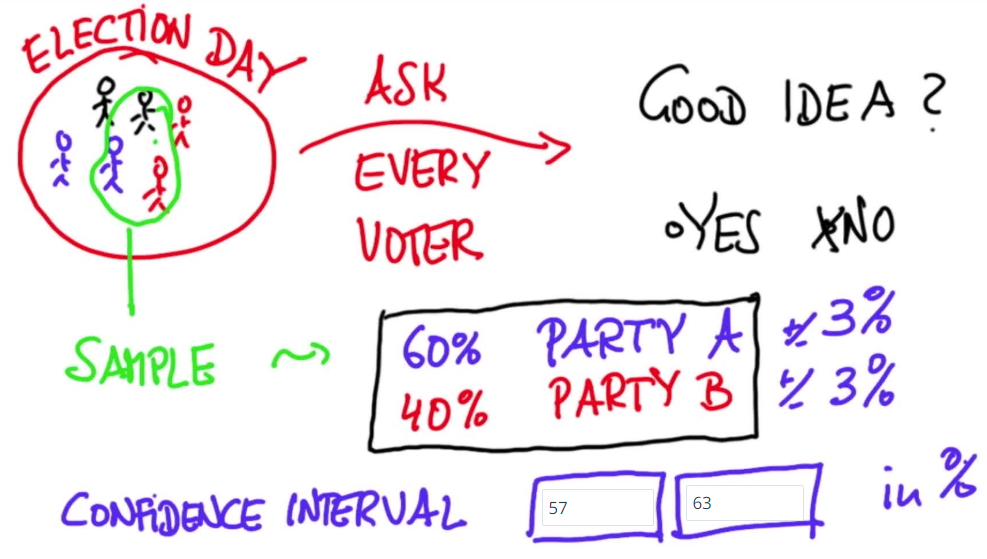 ELECTION DAY
ASK
EVERY
VOTER
GOOD IDEA?
YES XNO
SAMPLE
60% PARTY A +/- 3%
40% PARTY B +/- 3%
CONFIDENCE INTERVAL 57 63 in %